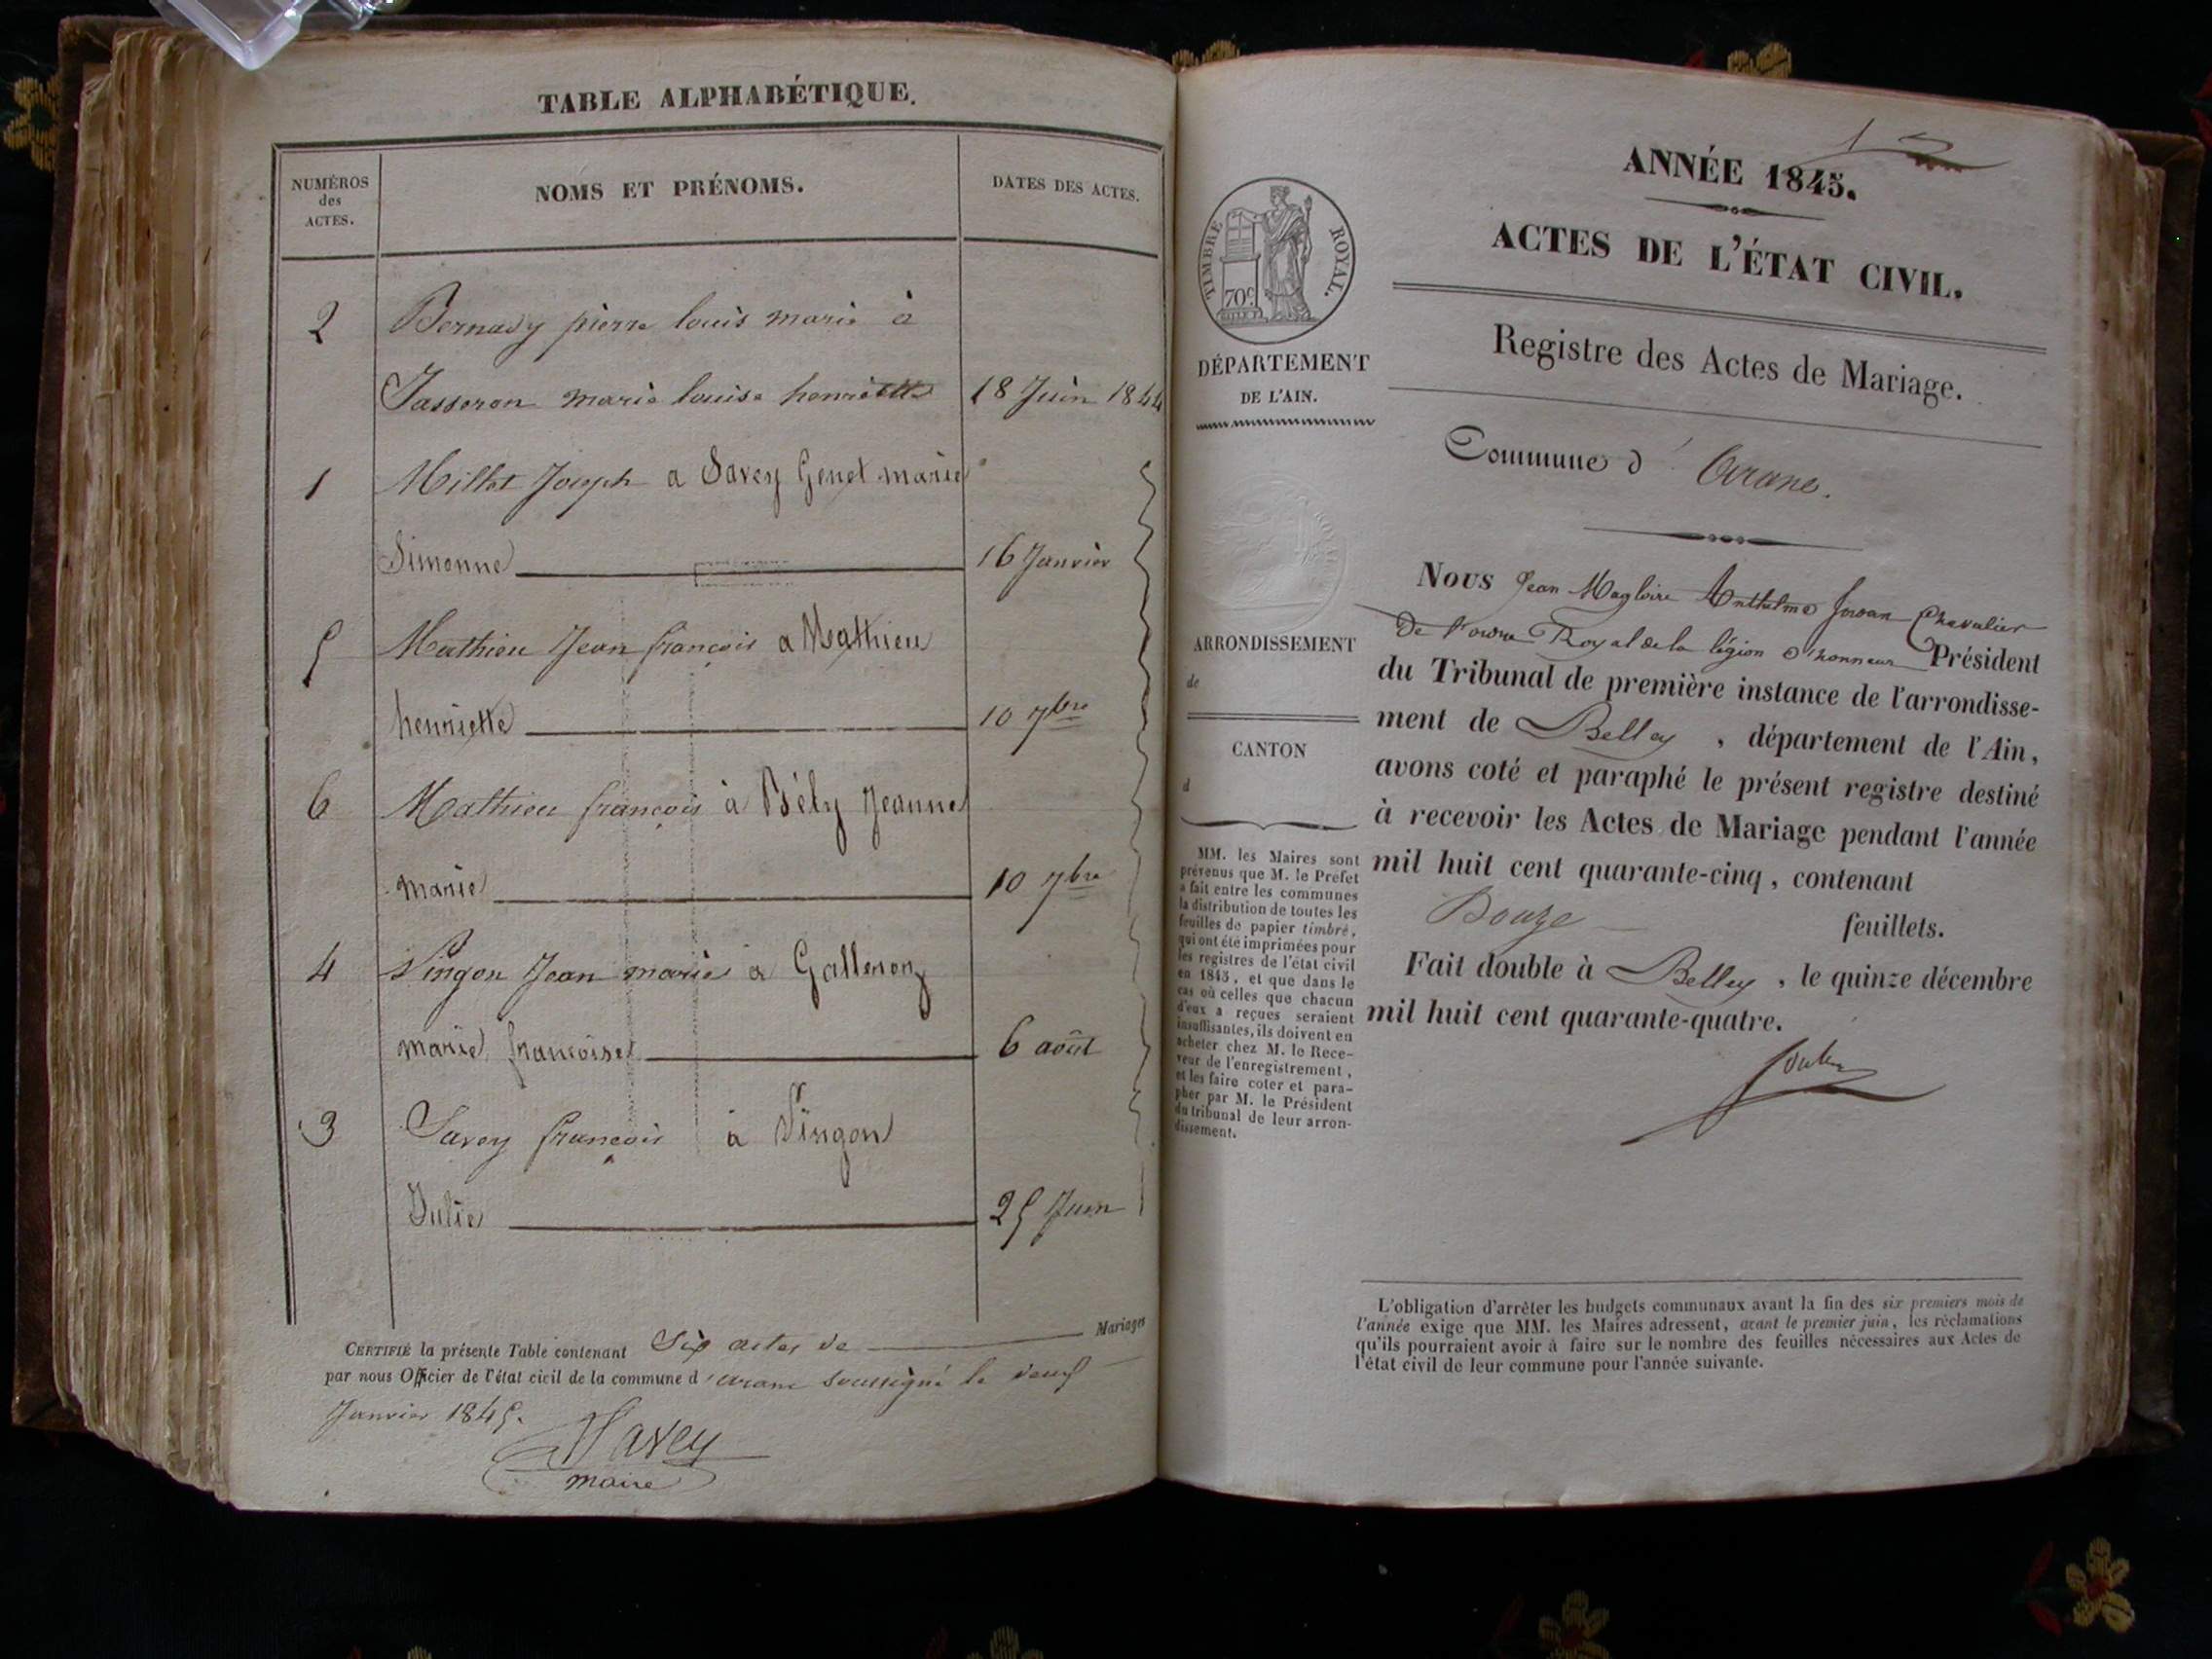 TABLE ALPHABÉTIQUE.
NUMÉROS
des
ACTES.
NOMS ET PRÉNOMS.
DATES DES ACTES.
2 Bernady pierre louis marie à
Jasseron marie louise henriette 18 Juin 1844
1 Millet Joseph a Savey Genet marie
Simonne 16 Janvier
5 Mathieu Jean françois a Mathieu
henriette 10 7bre
6 Mathieu françois à Bély Jeanne
marie 10 7bre
4 Pingon Jean marie a
marie françoise 6 août
3 Savey françois à Pingon
Julie 25 Juin
CERTIFIÉ la présente Table contenant Six actes de Mariages
par nous Officier de l'état civil de la commune d'arane soussigné le neuf
Janvier 1845.
Savey
maire
ANNÉE 1845.
ACTES DE L'ÉTAT CIVIL.
Registre des Actes de Mariage.
TIMBRE ROYAL.
70c
DÉPARTEMENT
DE L'AIN.
ARRONDISSEMENT
de
CANTON
d
MM. les Maires sont
prévenus que M. le Préfet
a fait entre les communes
la distribution de toutes les
feuilles de papier timbré,
qui ont été imprimées pour
les registres de l'état civil
en 1845, et que dans le
cas où celles que chacun
d'eux a reçues seraient
insuffisantes, ils doivent en
acheter chez M. le Rece-
veur de l'enregistrement,
et les faire coter et para-
pher par M. le Président
du tribunal de leur arron-
dissement.
Commune d'Arane.
Nous Jean Magloire Anthelme Chevalier
De l'ordre Royal de la légion d'honneur Président
du Tribunal de première instance de l'arrondisse-
ment de Belley, département de l'Ain,
avons coté et paraphé le présent registre destiné
à recevoir les Actes de Mariage pendant l'année
mil huit cent quarante-cinq, contenant
Douze feuillets.
Fait double à Belley, le quinze décembre
mil huit cent quarante-quatre.
L'obligation d'arrêter les budgets communaux avant la fin des six premiers mois de
l'année exige que MM. les Maires adressent, avant le premier juin, les réclamations
qu'ils pourraient avoir à faire sur le nombre des feuilles nécessaires aux Actes de
l'état civil de leur commune pour l'année suivante.